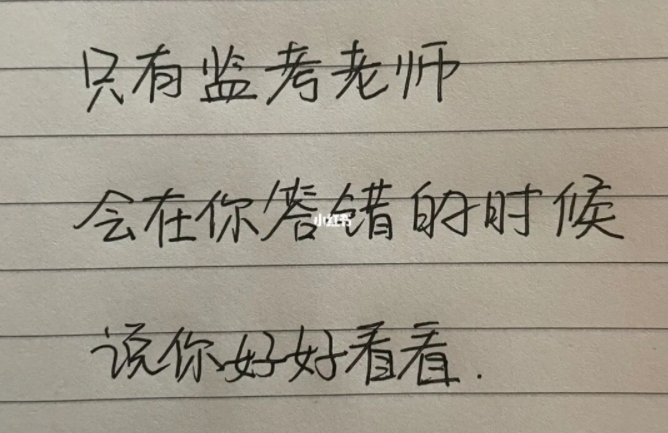 只有监考老师
会在你答错的时候
小红书
说你好好看看.